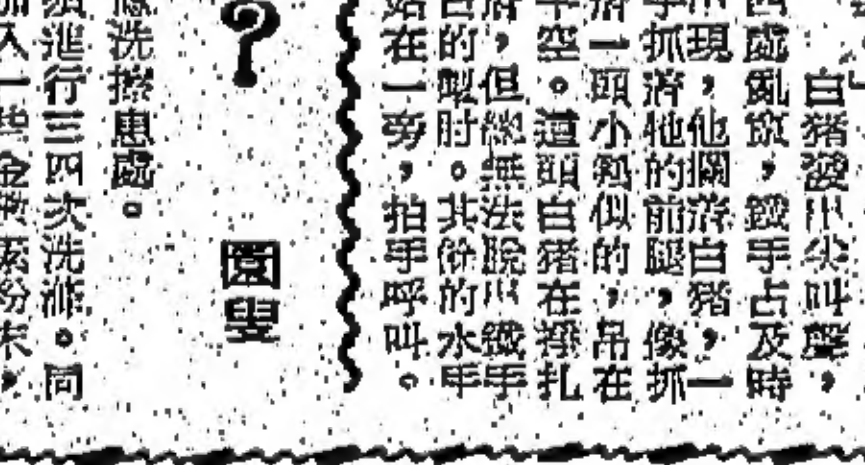 白猪發出尖叫聲，
四處亂竄，鐵手占及時
出現，他攔著白猪，一
手抓著牠的前腿，像抓
著一頭小鷄似的，吊在
半空。這頭白猪在掙扎
著，但總無法脫出鐵手
占的掣肘。其餘的水手
站在一旁，拍手呼叫。
？
園叟
洗擦患處。
須進行三四次洗滌。同
加入一些金黴素粉末，